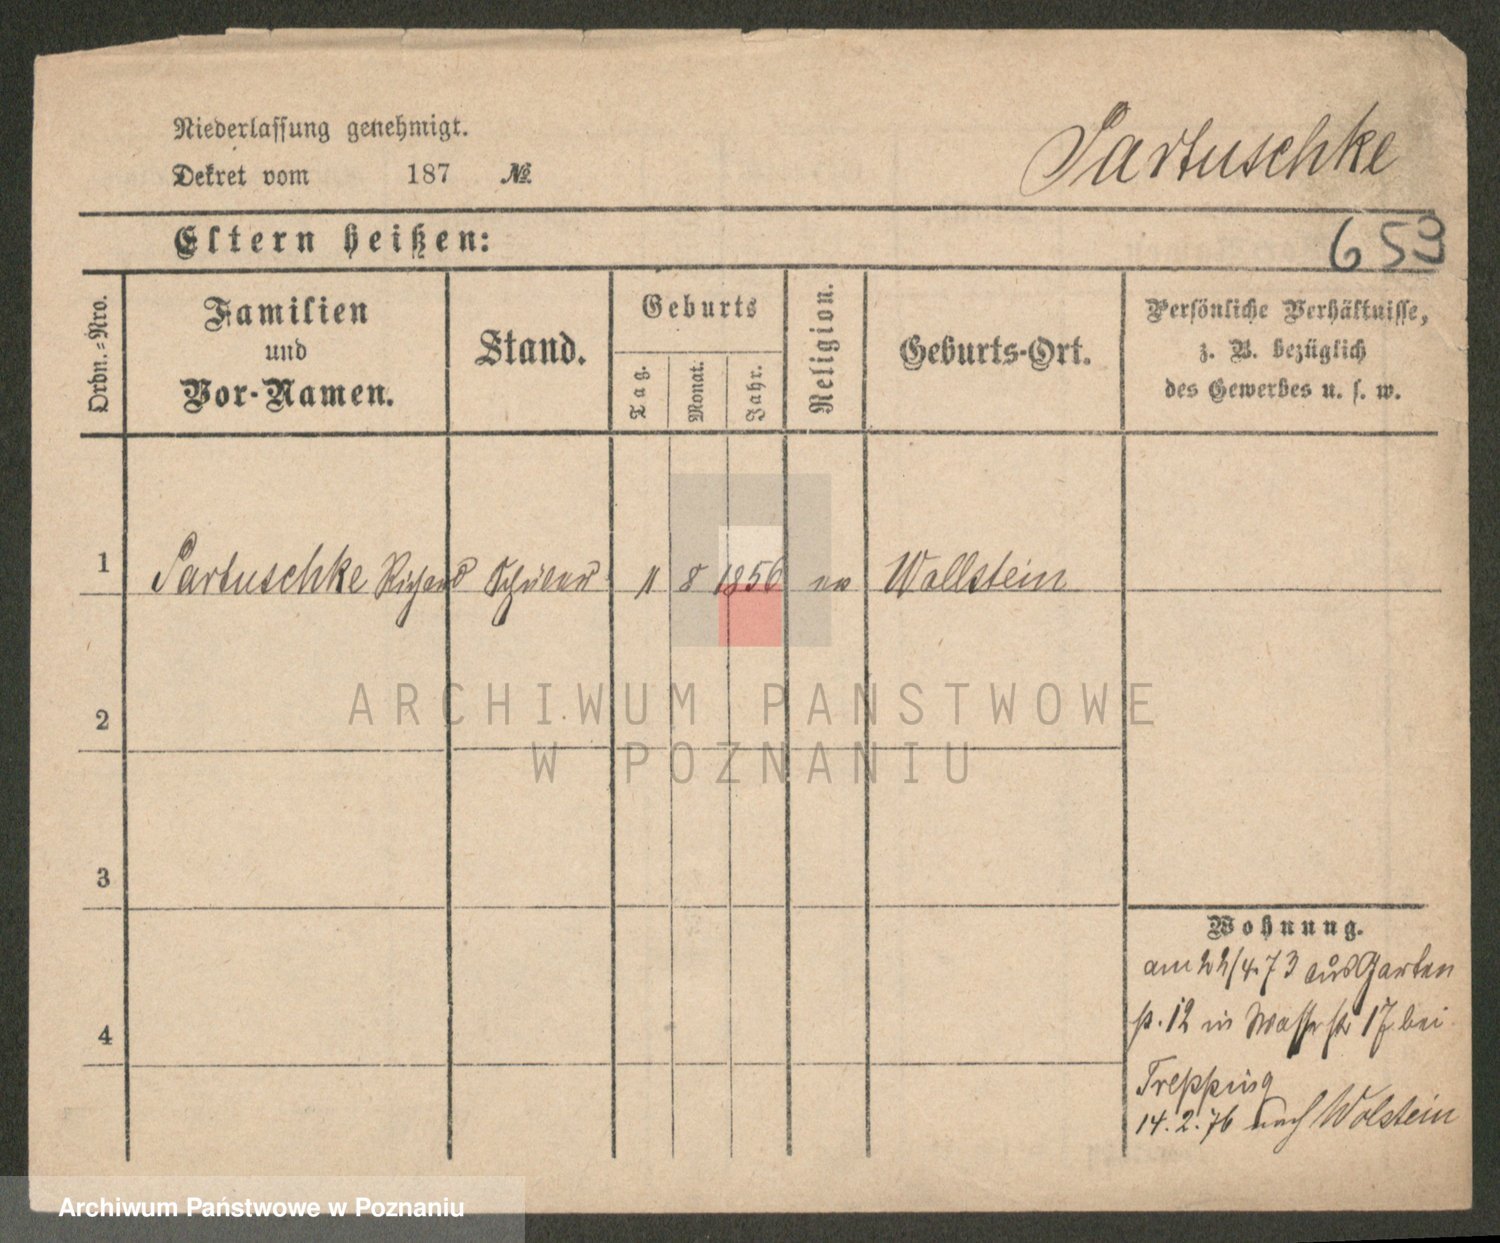 Niederlassung genehmigt.
Partuschke
Dekret vom 187 №
Eltern heißen:
659
Ordn.-Nro.
Familien
und
Vor-Namen.
Stand.
Geburts
Tag.
Monat.
Jahr.
Religion.
Geburts-Ort.
Persönliche Verhältnisse,
z. B. bezüglich
des Gewerbes u. s. w.
1 Partuschke Richard Schüler 11 8 1856 ev Wollstein
2
3
4
Wohnung.
am 22/4.73 aus Garten
st. 12 in Wasserstr 17 bei
14.2.76 nach Wolstein
ARCHIWUM PAŃSTWOWE
W POZNANIU
Archiwum Państwowe w Poznaniu